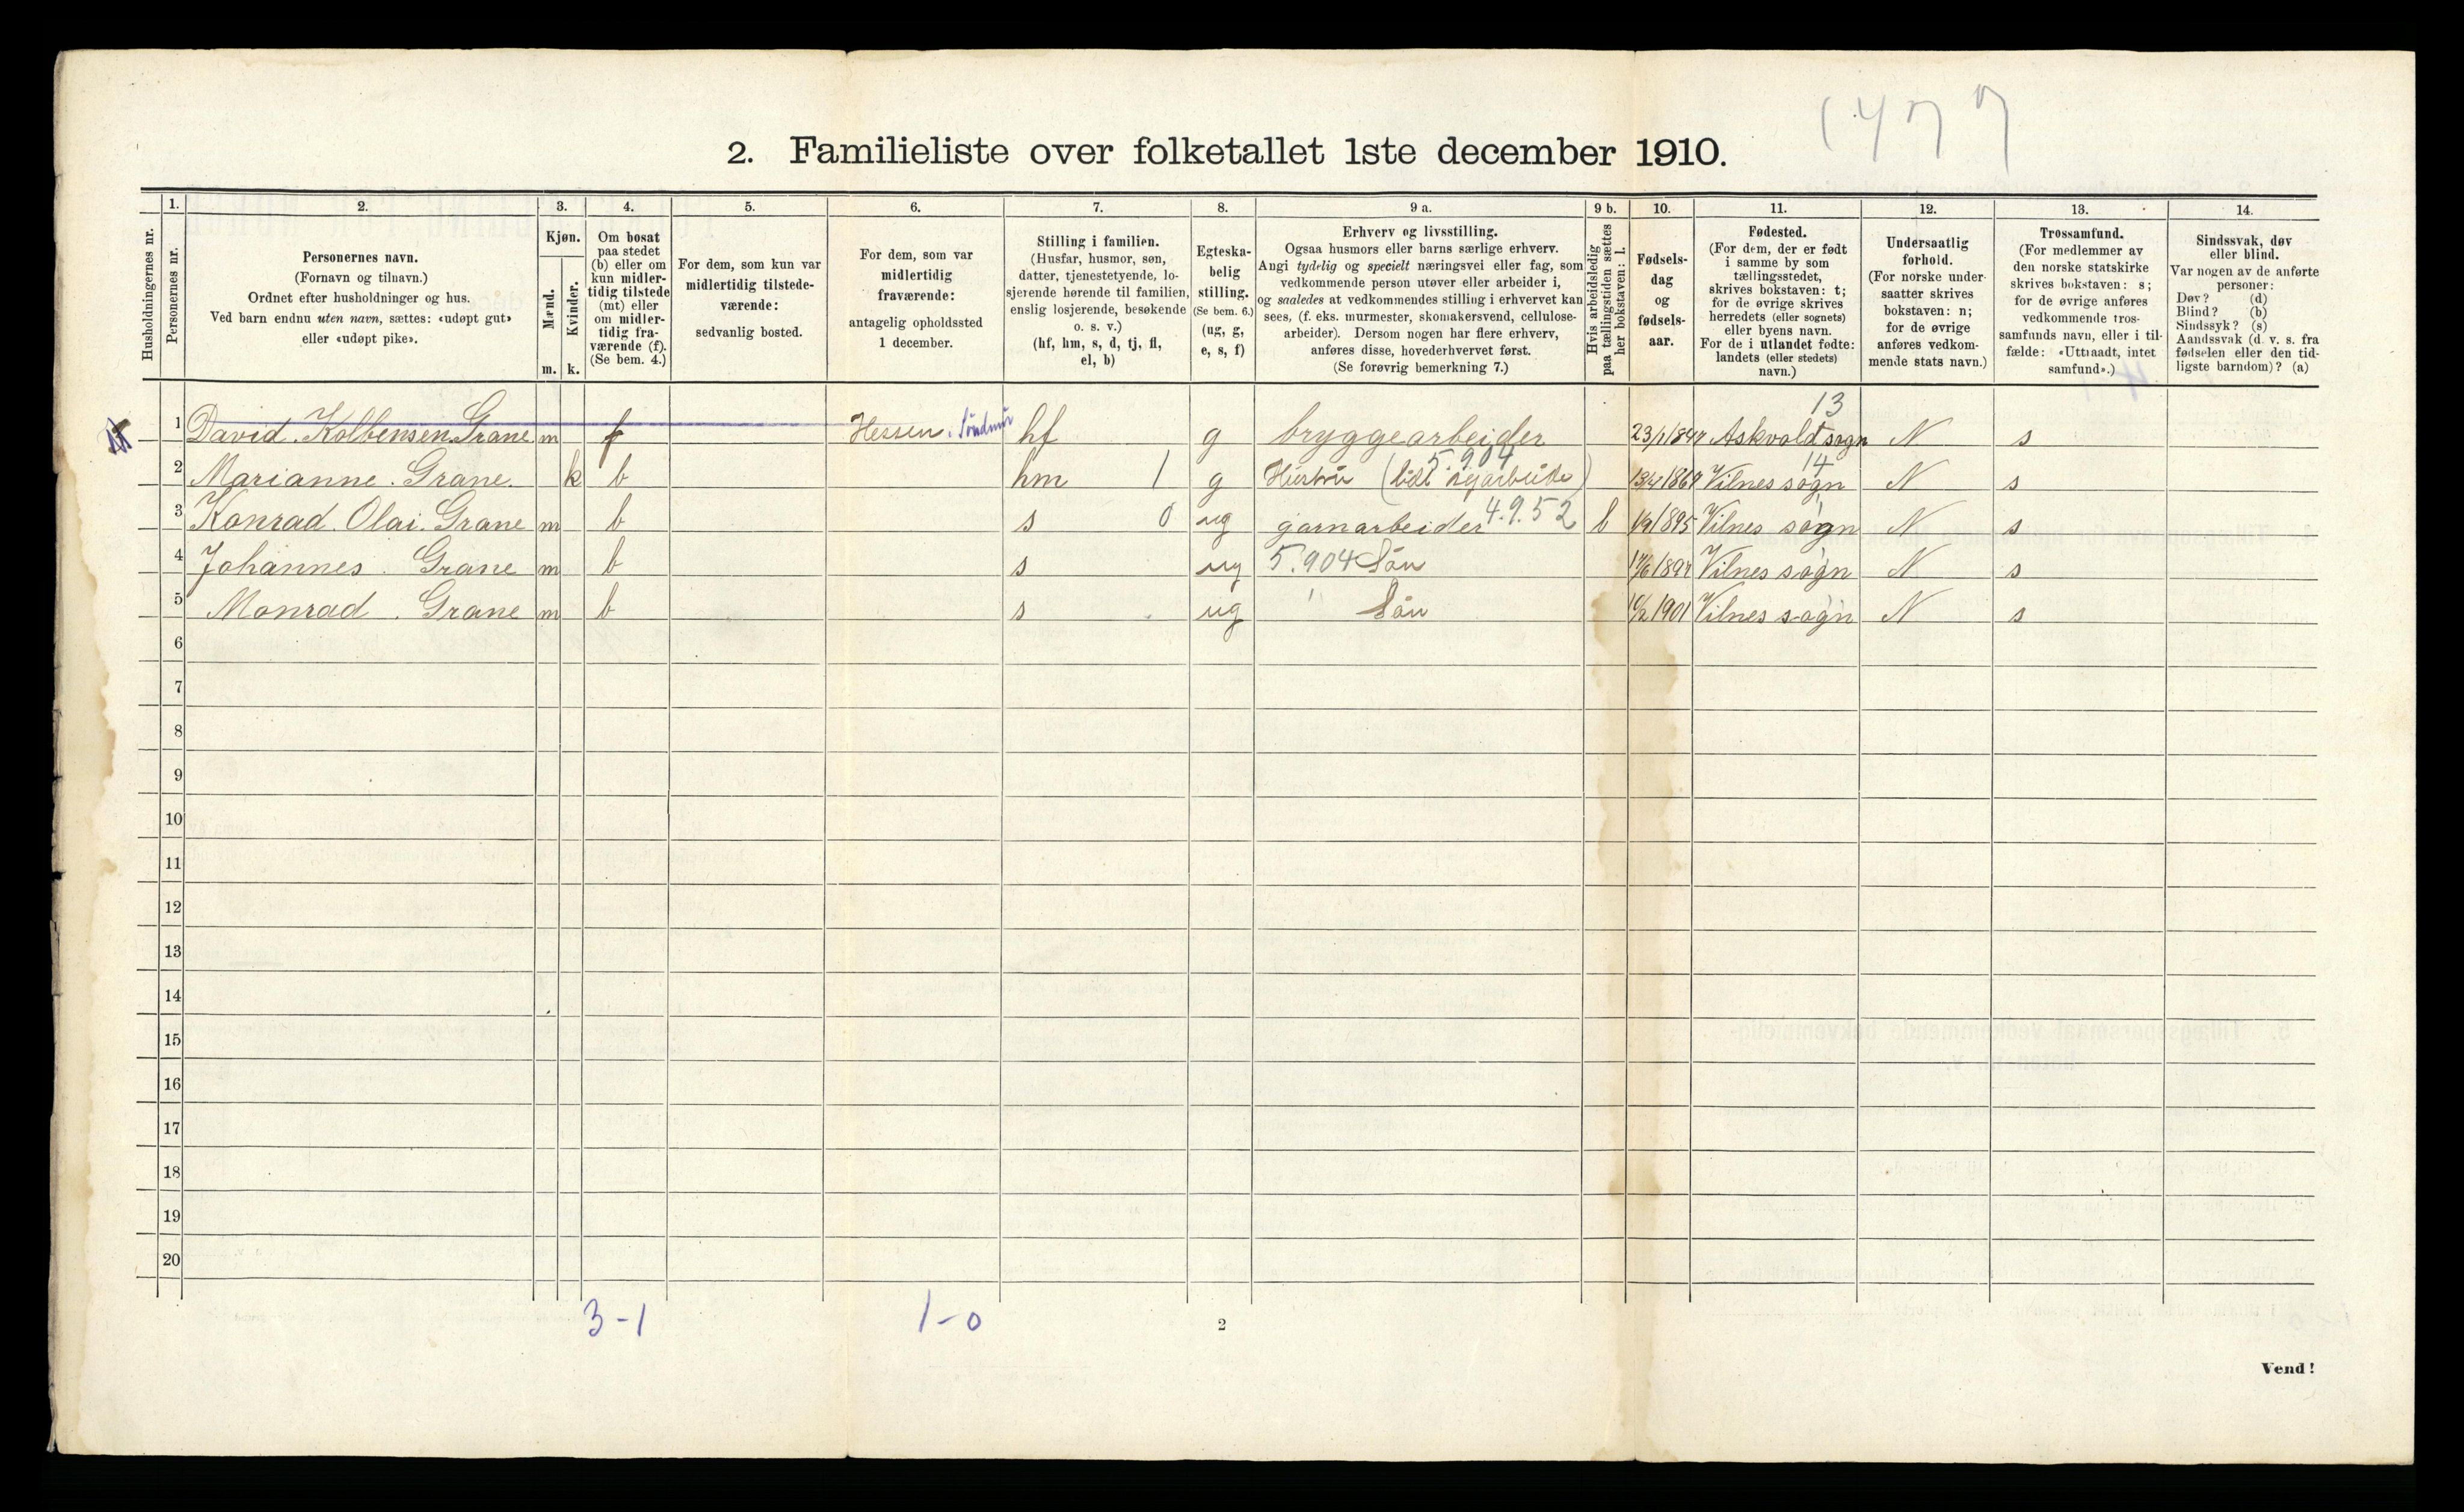 1477
2. Familieliste over folketallet 1ste december 1910.
1. 2. 3. 4. 5. 6. 7. 8. 9 a. 9 b. 10. 11. 12. 13. 14.
Husholdningernes nr.
Personernes nr.
Personernes navn.
(Fornavn og tilnavn.)
Ordnet efter husholdninger og hus.
Ved barn endnu uten navn, sættes: «udøpt gut»
eller «udøpt pike».
Kjøn.
Mænd.
Kvinder.
m. k.
Om bosat
paa stedet
(b) eller om
kun midler-
tidig tilstede
(mt) eller
om midler-
tidig fra-
værende (f).
(Se bem. 4.)
For dem, som kun var
midlertidig tilstede-
værende:
sedvanlig bosted.
For dem, som var
midlertidig
fraværende:
antagelig opholdssted
1 december.
Stilling i familien.
(Husfar, husmor, søn,
datter, tjenestetyende, lo-
sjerende hørende til familien,
enslig losjerende, besøkende
o. s. v.)
(hf, hm, s, d, tj, fl,
el, b)
Egteska-
belig
stilling.
(Se bem. 6.)
(ug, g,
e, s, f)
Erhverv og livsstilling.
Ogsaa husmors eller barns særlige erhverv.
Angi tydelig og specielt næringsvei eller fag, som
vedkommende person utøver eller arbeider i,
og saaledes at vedkommendes stilling i erhvervet kan
sees, (f. eks. murmester, skomakersvend, cellulose-
arbeider). Dersom nogen har flere erhverv,
anføres disse, hovederhvervet først.
(Se forøvrig bemerkning 7.)
Hvis arbeidsledig
paa tællingstiden sættes
her bokstaven: l.
Fødsels-
dag
og
fødsels-
aar.
Fødested.
(For dem, der er født
i samme by som
tællingsstedet,
skrives bokstaven: t;
for de øvrige skrives
herredets (eller sognets)
eller byens navn.
For de i utlandet fødte:
landets (eller stedets)
navn.)
Undersaatlig
forhold.
(For norske under-
saatter skrives
bokstaven: n;
for de øvrige
anføres vedkom-
mende stats navn.)
Trossamfund.
(For medlemmer av
den norske statskirke
skrives bokstaven: s;
for de øvrige anføres
vedkommende tros-
samfunds navn, eller i til-
fælde: «Uttraadt, intet
samfund».)
Sindssvak, døv
eller blind.
Var nogen av de anførte
personer:
Døv? (d)
Blind? (b)
Sindssyk? (s)
Aandssvak (d. v. s. fra
fødselen eller den tid-
ligste barndom)? (a)
13
1 David. Kolbensen. Grane m f Hessen. Söndmör hf g bryggearbeider 23/1 1847 Askvold sogn N s
5.904 14
2 Marianne. Grane. k b hm 1 g Hustru 13/4 1867 Vilnes sogn N s
3 Konrad. Olai. Grane m b s 0 ug garnarbeider 4.9.52 b 1/9 1895 Vilnes sogn N s
4 Johannes. Grane m b s ug 5.904 Sön 17/6 1897 Vilnes sogn N s
5 Monrad. Grane m b s ug Sön 10/2 1901 Vilnes sogn N s
6
7
8
9
10
11
12
13
14
15
16
17
18
19
20
3-1 1-0
2
Vend!